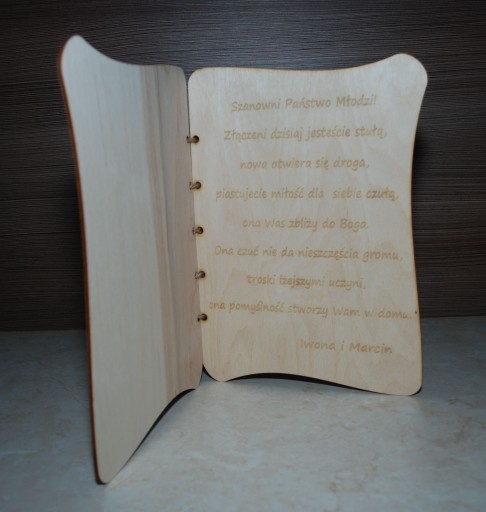 Szanowni Państwo Młodzi!
Złączeni dzisiaj jesteście stułą,
nowa otwiera się droga,
piastujecie miłość dla siebie czułą,
ona Was zbliży do Boga.
Ona czuć nie da nieszczęścia gromu,
troski lżejszymi uczyni,
ona pomyślność stworzy Wam w domu.
Iwona i Marcin